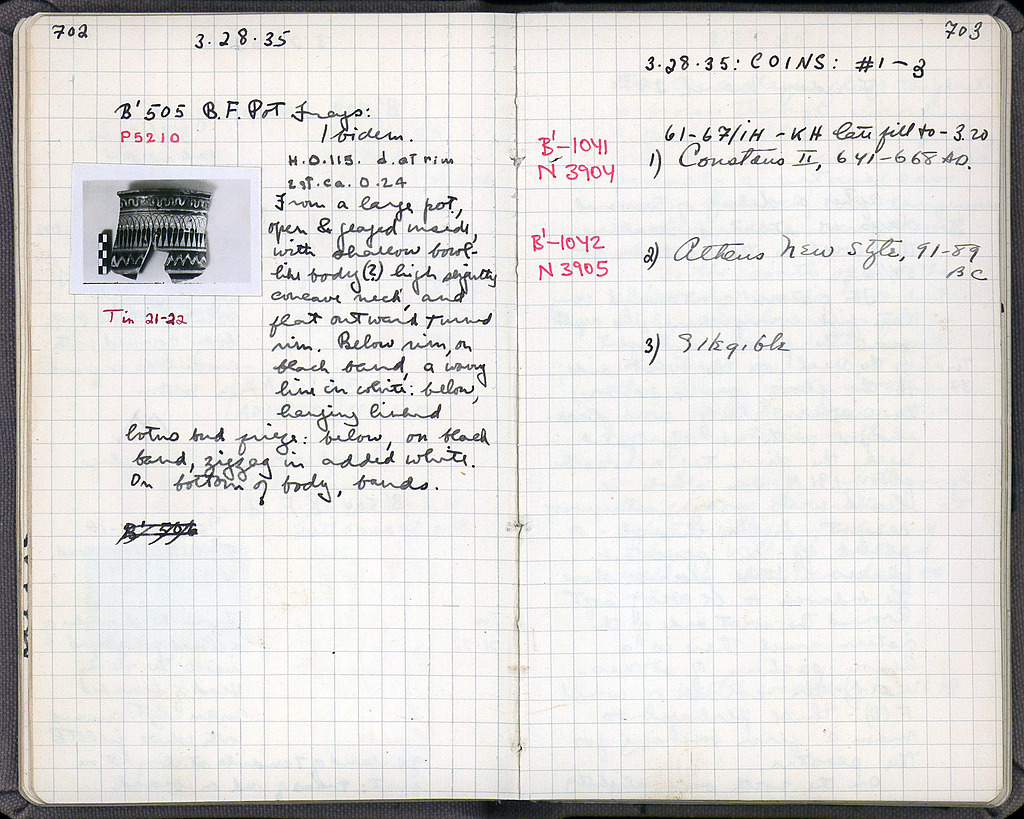 702
3·28·35
B'505 B.F. Pot Frags:
P5210
Ibidem.
H.0.115. d. at rim
est. ca. 0.24
From a large pot,
open & glazed inside,
with shallow bowl-
like body(?) high slightly
concave neck, and
flat outward turned
rim. Below rim, on
black band, a wavy
line in white: below,
hanging linked
lotus bud frieze: below, on black
band, zigzag in added white.
On bottom of body, bands.
Tin 21-22
B' 506
703
3·28·35: COINS: #1-3
61-67/ΙΗ - ΚΗ late fill to -3.20
B'-1041
N 3904
1) Constans II, 641-668 AD.
B'-1042
N 3905
2) Athens New Style, 91-89
BC
3) Illegible